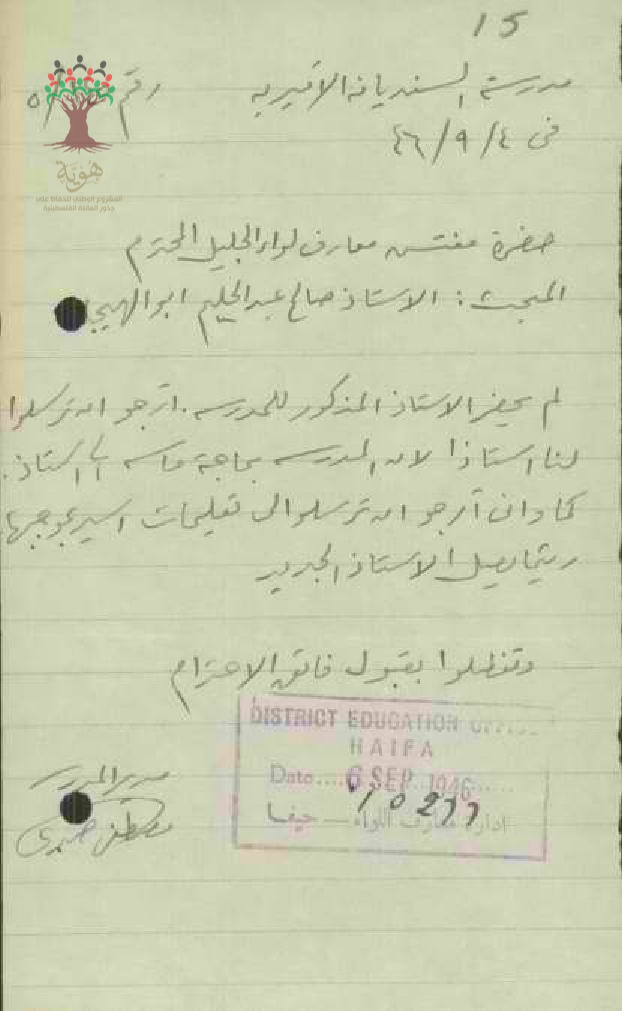 15
مدرسة السنديانة الاميرية
رقم ٥/
في ٤/٩/٤٦
هوية
المشروع الوطني للحفاظ على
جذور العائلة الفلسطينية
حضرة مفتش معارف لواء الجليل المحترم
المبحث: الاستاذ صالح عبد الحليم ابو الهيجا
لم يحضر الاستاذ المذكور للمدرسه. ارجو ان ترسلوا
لنا استاذا لان المدرسه بحاجة ماسه الى استاذ.
كما واني أرجو ان ترسلوا لي تعليمات اسير بموجبها
ريثما يصل الاستاذ الجديد
وتفضلوا بقبول فائق الاحترام
DISTRICT EDUCATION OFFICE
HAIFA
Date 6 SEP 1946
ادارة معارف اللواء حيفا
مدير المدرسه
مصطفى